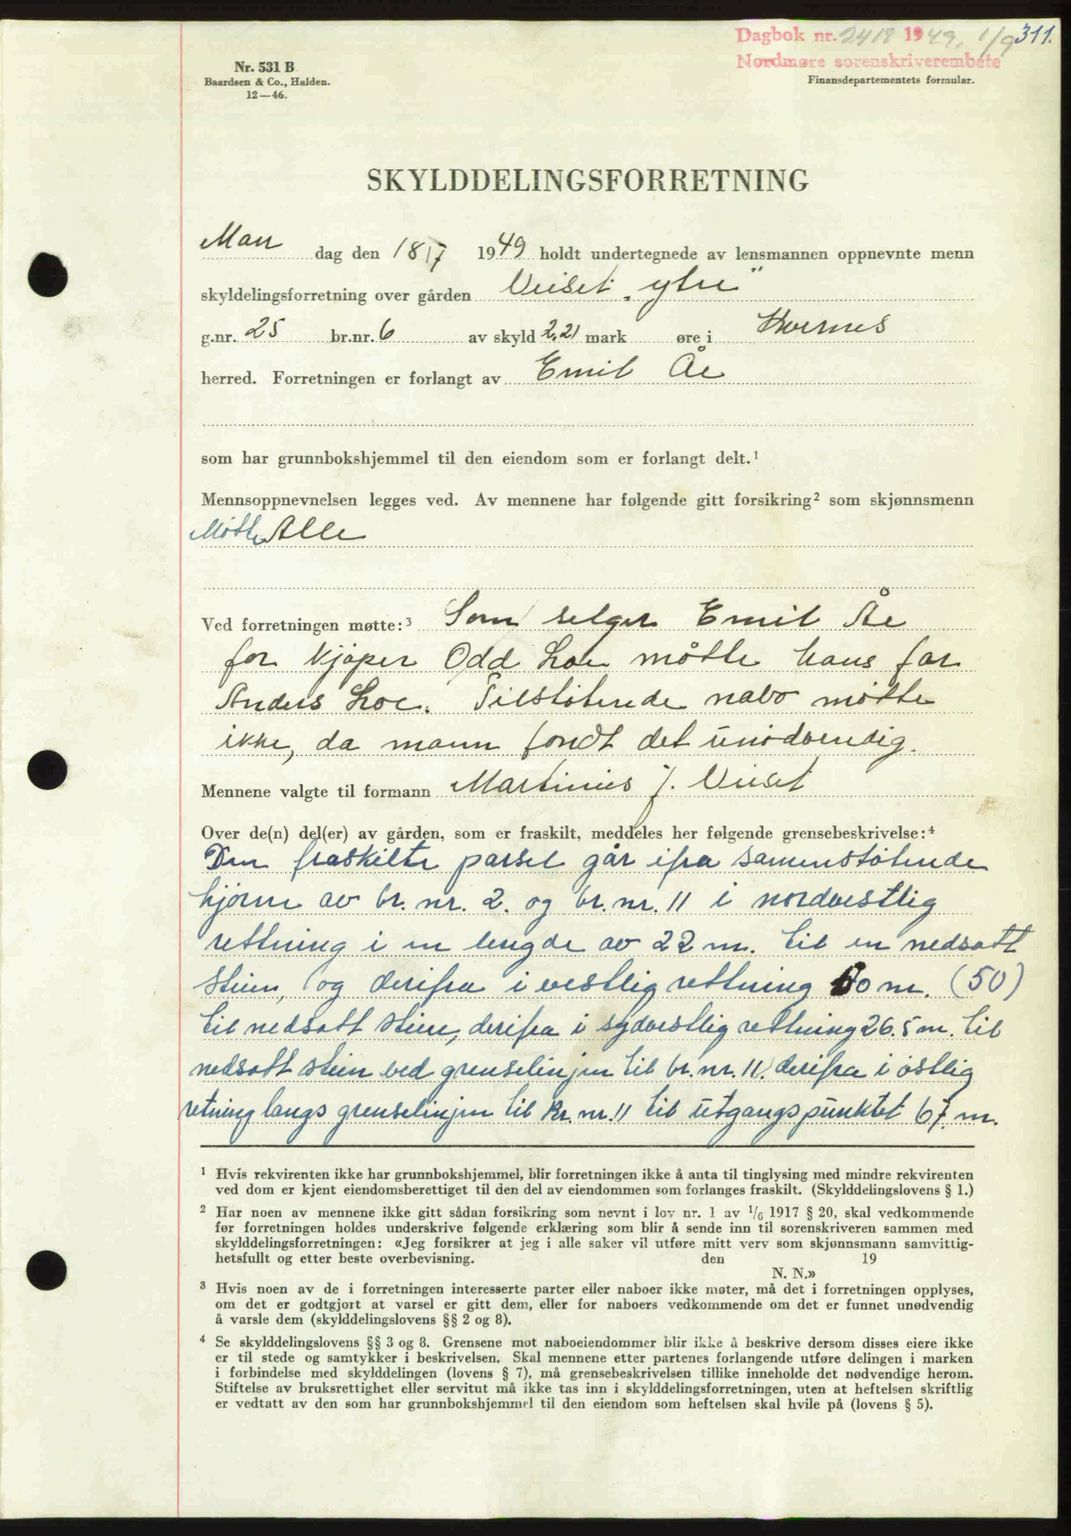 Dagbok nr. 2418 1949, 1/9 311.
Nordmøre sorenskriverembete
Nr. 531 B
Baardsen & Co., Halden.
12—46.
Finansdepartementets formular.
SKYLDDELINGSFORRETNING
Man dag den 18/7 1949 holdt undertegnede av lensmannen oppnevnte menn
skyldelingsforretning over gården Veiset „ytre"
g.nr. 25 br.nr. 6 av skyld 2,21 mark øre i Kvernes
herred. Forretningen er forlangt av Emil Åe
som har grunnbokshjemmel til den eiendom som er forlangt delt.¹
Mennsoppnevnelsen legges ved. Av mennene har følgende gitt forsikring² som skjønnsmenn
Alle
Ved forretningen møtte:³ Som selger Emil Åe
for kjøper Odd Loe møtte hans far
Anders Loe. Tilstøtende nabo møtte
ikke, da mann fondt det unødvendig.
Mennene valgte til formann Martinus J. Veiset
Over de(n) del(er) av gården, som er fraskilt, meddeles her følgende grensebeskrivelse:⁴
Den fraskilte parsel går ifra samenstøtende
hjørne av br. nr. 2. og br. nr. 11 i nordvestlig
rettning i en lengde av 22 m. til en nedsatt
stien, og derifra i vestlig rettning 50 m. (50)
til nedsatt stien, derifra i sydvestlig rettning 26.5 m. til
nedsatt stien ved grenselinjen til br. nr. 11. derifra i østlig
retning langs grenselinjen til Br. nr. 11 til utgangspunktet 67 m.
¹ Hvis rekvirenten ikke har grunnbokshjemmel, blir forretningen ikke å anta til tinglysing med mindre rekvirenten
ved dom er kjent eiendomsberettiget til den del av eiendommen som forlanges fraskilt. (Skylddelingslovens § 1.)
² Har noen av mennene ikke gitt sådan forsikring som nevnt i lov nr. 1 av 1/6 1917 § 20, skal vedkommende
før forretningen holdes underskrive følgende erklæring som blir å sende inn til sorenskriveren sammen med
skylddelingsforretningen: «Jeg forsikrer at jeg i alle saker vil utføre mitt verv som skjønnsmann samvittig-
hetsfullt og etter beste overbevisning. den 19
N. N.»
³ Hvis noen av de i forretningen interesserte parter eller naboer ikke møter, må det i forretningen opplyses,
om det er godtgjort at varsel er gitt dem, eller for naboers vedkommende om det er funnet unødvendig
å varsle dem (skylddelingslovens §§ 2 og 8).
⁴ Se skylddelingslovens §§ 3 og 8. Grensene mot naboeiendommer blir ikke å beskrive dersom disses eiere ikke
er til stede og samtykker i beskrivelsen. Skal mennene etter partenes forlangende utføre delingen i marken
i forbindelse med skylddelingen (lovens § 7), må grensebeskrivelsen tillike inneholde det nødvendige herom.
Stiftelse av bruksrettighet eller servitut må ikke tas inn i skylddelingsforretningen, uten at heftelsen skriftlig
er vedtatt av den som har grunnbokshjemmel til den eiendom som heftelsen skal hvile på (lovens § 5).